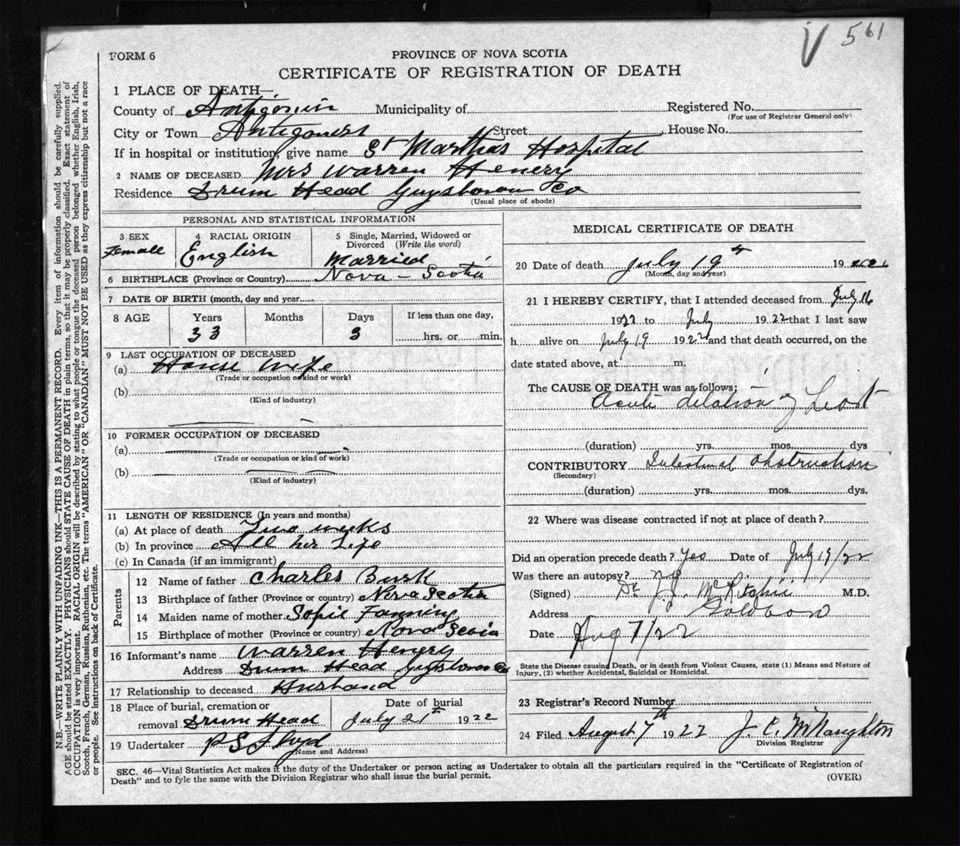 V 561
FORM 6
PROVINCE OF NOVA SCOTIA
CERTIFICATE OF REGISTRATION OF DEATH
N.B.—WRITE PLAINLY WITH UNFADING INK—THIS IS A PERMANENT RECORD. Every item of information should be carefully supplied.
AGE should be stated EXACTLY. PHYSICIANS should STATE CAUSE OF DEATH in plain terms, so that it may be properly classified. Exact statement of
OCCUPATION is very important. RACIAL ORIGIN will be described by stating to what people or tongue the deceased person belonged whether English, Irish,
Scotch, French, German, Russian, Ruthenian, etc. The terms "AMERICAN" OR "CANADIAN" MUST NOT BE USED as they express citizenship but not a race
or people. See instructions on back of Certificate.
1 PLACE OF DEATH—
County of Municipality of Registered No.
(For use of Registrar General only)
City or Town Street House No.
If in hospital or institution, give name St Marthas Hospital
2 NAME OF DECEASED Mrs Warren Henery
Residence Drum Head Guysborou Co
(Usual place of abode)
PERSONAL AND STATISTICAL INFORMATION
3 SEX 4 RACIAL ORIGIN 5 Single, Married, Widowed or
Divorced (Write the word)
Female English Married
6 BIRTHPLACE (Province or Country) Nova-Scotia
7 DATE OF BIRTH (month, day and year)
8 AGE Years Months Days If less than one day,
33 3 hrs. or min.
9 LAST OCCUPATION OF DECEASED
(a) House Wife
(Trade or occupation or kind or work)
(b)
(Kind of industry)
10 FORMER OCCUPATION OF DECEASED
(a)
(Trade or occupation or kind of work)
(b)
(Kind of industry)
11 LENGTH OF RESIDENCE (In years and months)
(a) At place of death Two weeks
(b) In province All her Life
(c) In Canada (if an immigrant)
Parents
12 Name of father Charles Burk
13 Birthplace of father (Province or country) Nova Scotia
14 Maiden name of mother Fanning
15 Birthplace of mother (Province or country) Nova Scotia
16 Informant's name Warren Henery
Address Drum Head
17 Relationship to deceased Husband
18 Place of burial, cremation or Date of burial
removal Drum Head July 21st 1922
19 Undertaker
(Name and Address)
MEDICAL CERTIFICATE OF DEATH
20 Date of death July 19th 19
(Month, day and year)
21 I HEREBY CERTIFY, that I attended deceased from July 16
1922 to July 1922 that I last saw
h alive on July 19 1922 and that death occurred, on the
date stated above, at m.
The CAUSE OF DEATH was as follows:
Acute dilation of heart
(duration) yrs. mos. dys
CONTRIBUTORY Intestinal obstruction
(Secondary)
(duration) yrs. mos. dys.
22 Where was disease contracted if not at place of death?
Did an operation precede death? Yes Date of July 19/22
Was there an autopsy?
(Signed) Dr M.D.
Address
Date Aug 7/22
State the Disease causing Death, or in death from Violent Causes, state (1) Means and Nature of
Injury, (2) whether Accidental, Suicidal or Homicidal.
23 Registrar's Record Number
24 Filed August 7th 1922 McNaughton
Division Registrar
SEC. 46—Vital Statistics Act makes it the duty of the Undertaker or person acting as Undertaker to obtain all the particulars required in the "Certificate of Registration of
Death" and to fyle the same with the Division Registrar who shall issue the burial permit.
(OVER)